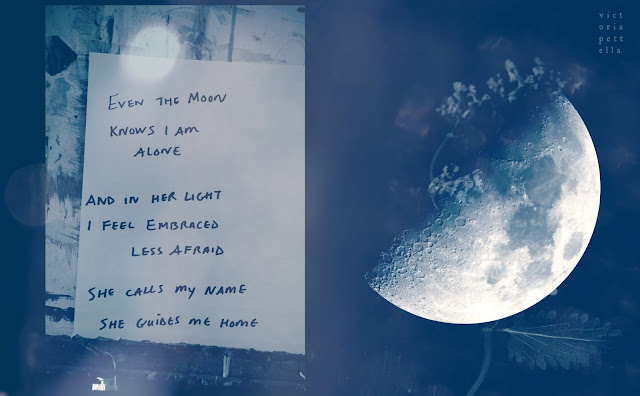 EVEN THE MOON
KNOWS I AM
ALONE
AND IN HER LIGHT
I FEEL EMBRACED
LESS AFRAID
SHE CALLS MY NAME
SHE GUIDES ME HOME
vict
oria
pett
ella